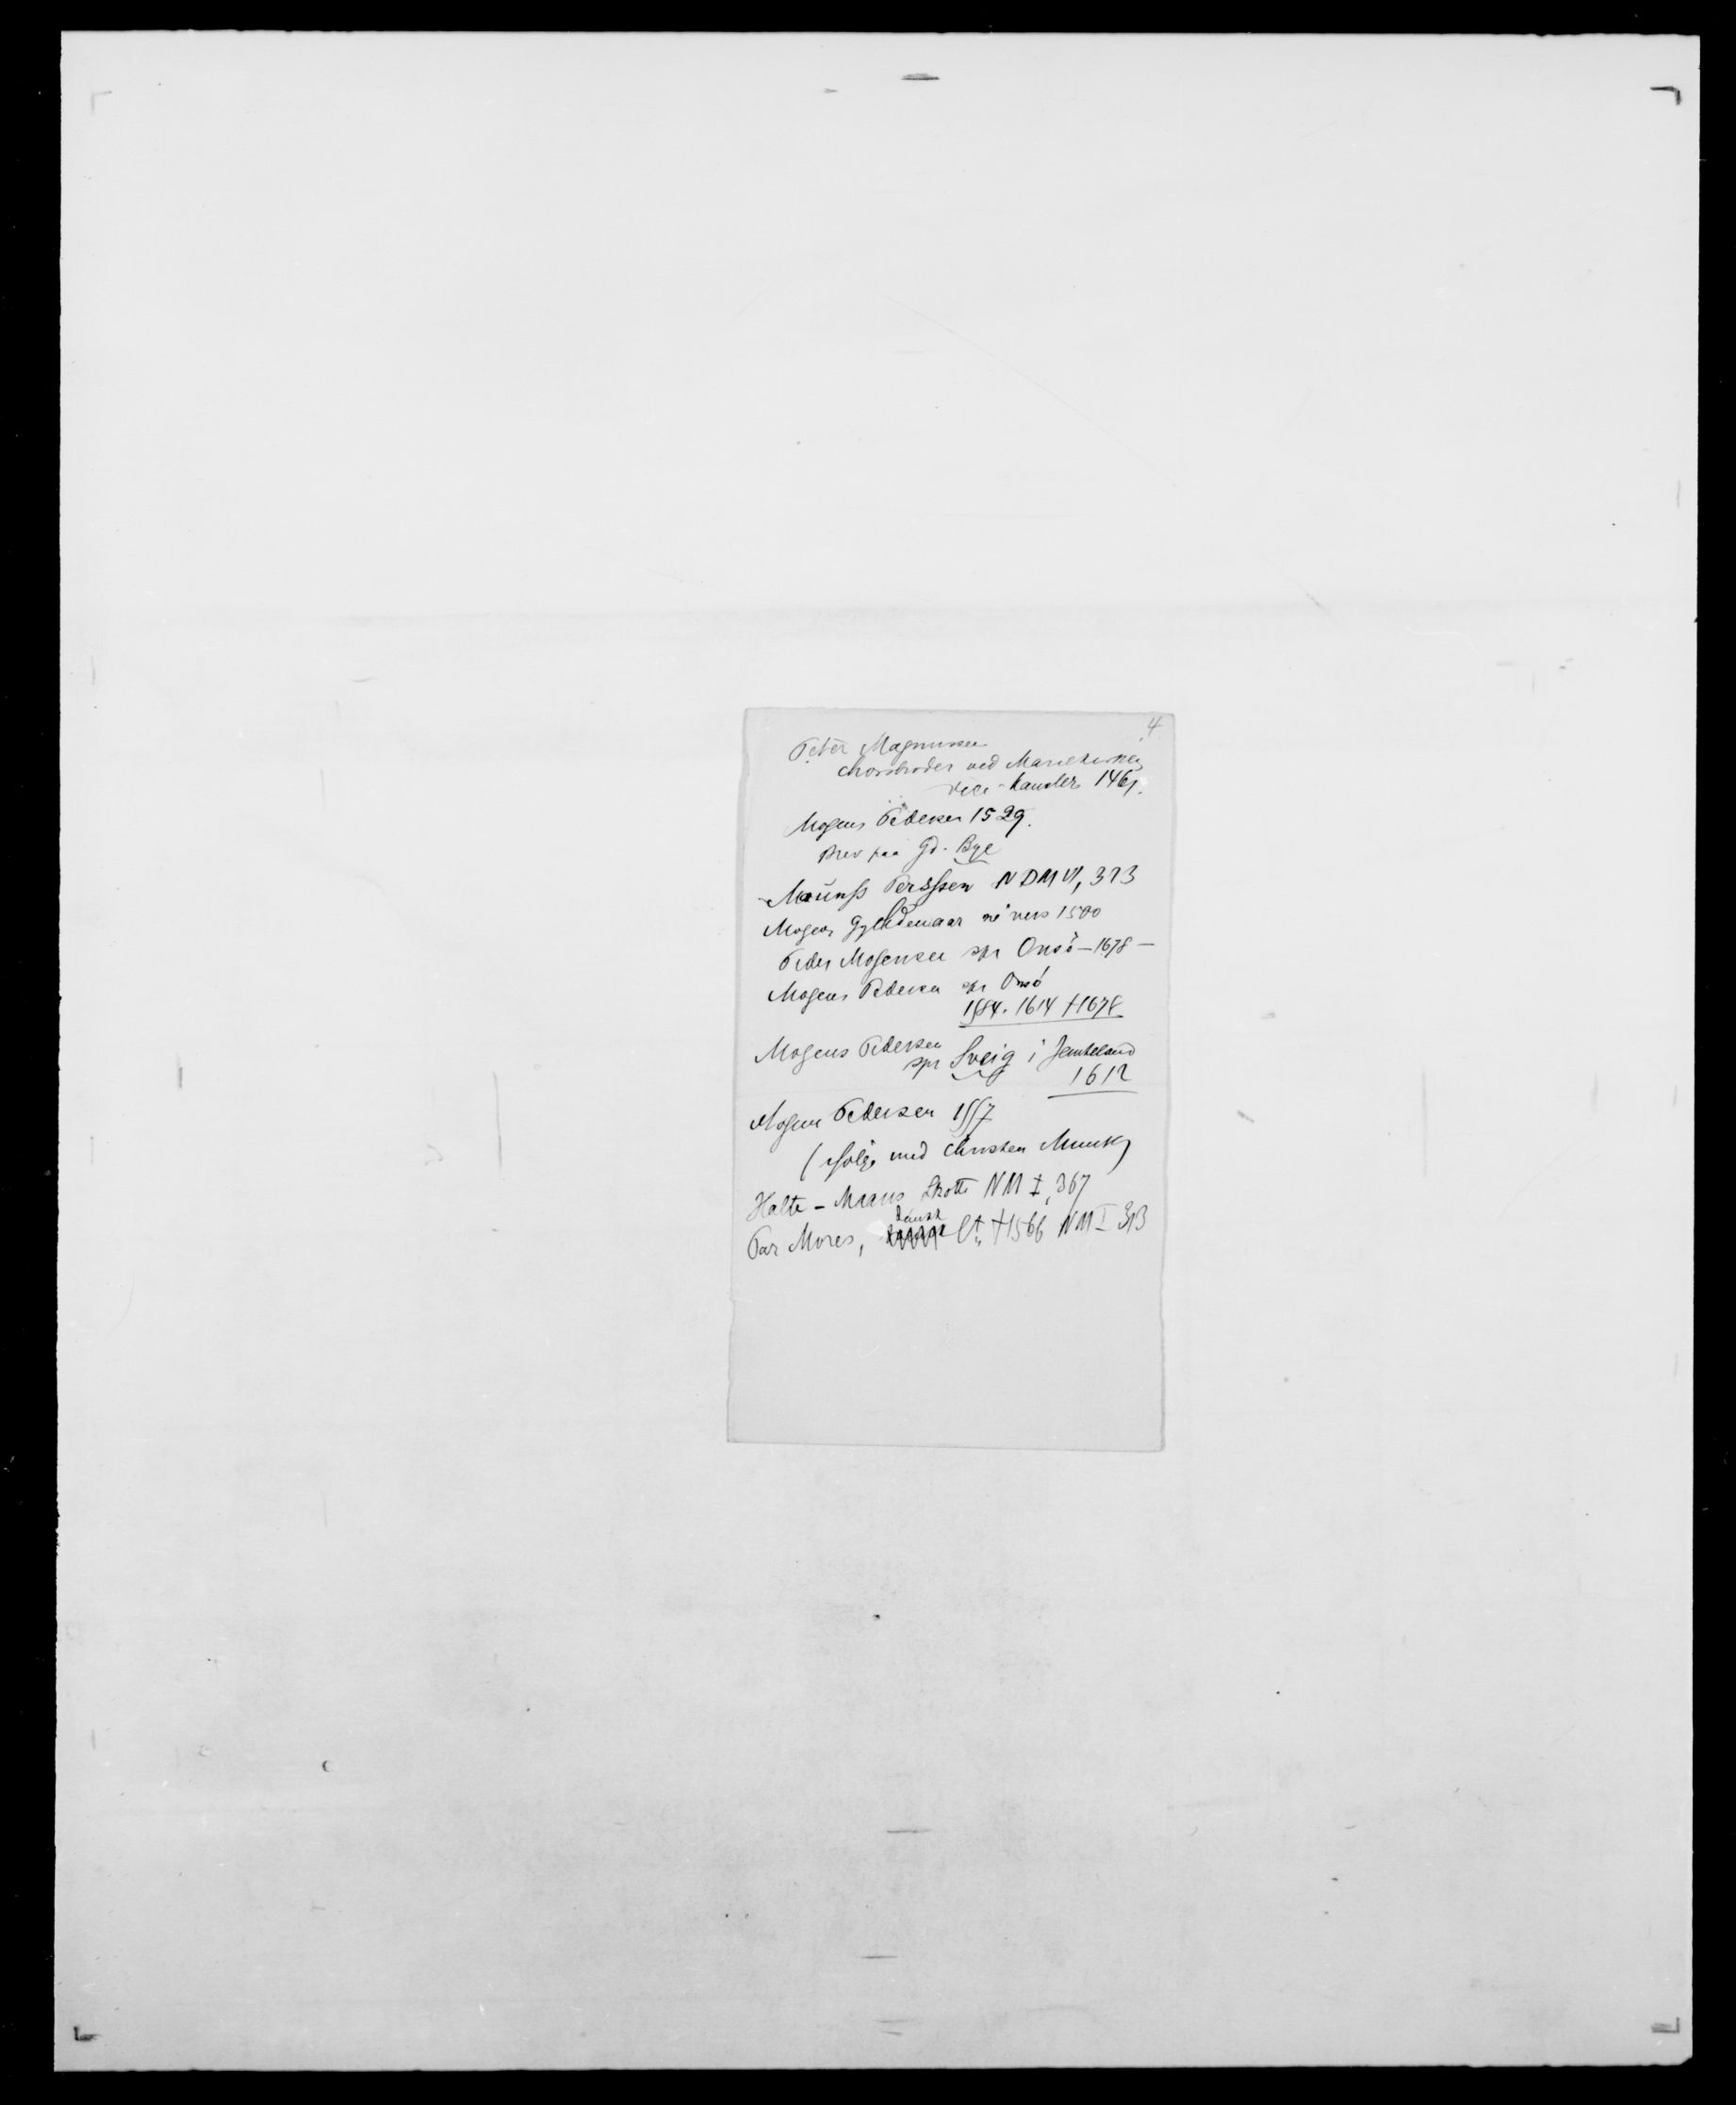 4
Peter Magnussen
chorsbroder ved Mariekirken
vice-kansler 1461.
Mogens Pedersen 1529.
Brev paa Gd. Bye
Maunss Perssen NDM VI, 373
Mogens Gyldenaar 1500
Peder Mogensen spr Onsö — 1678 —
Mogens Pedersen spr Onsö
1584. 1614 †1678
Mogens Pedersen
spr Sveig i Jemteland
1612
Mogens Pedersen 1557
(følge med Christen Munk)
Halte - Maans Skotte NM I, 367
dansk
Par Mores, Lt. †1566 NM I 313